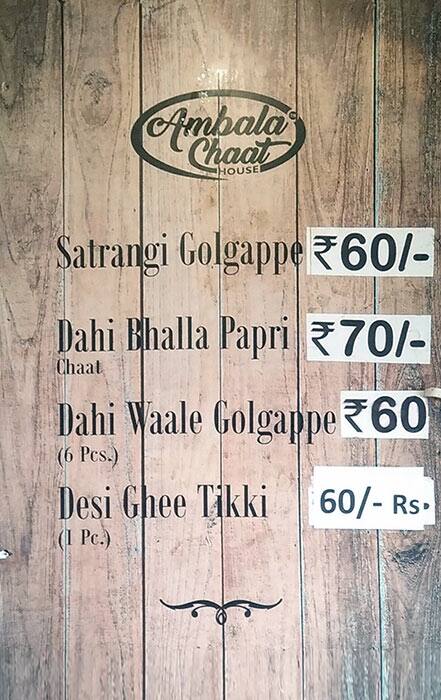 Ambala
Chaat
HOUSE
Satrangi Golgappe ₹60/-
Dahi Bhalla Papri ₹70/-
Chaat
Dahi Waale Golgappe ₹60
(6 Pcs.)
Desi Ghee Tikki 60/- Rs.
(1 Pc.)